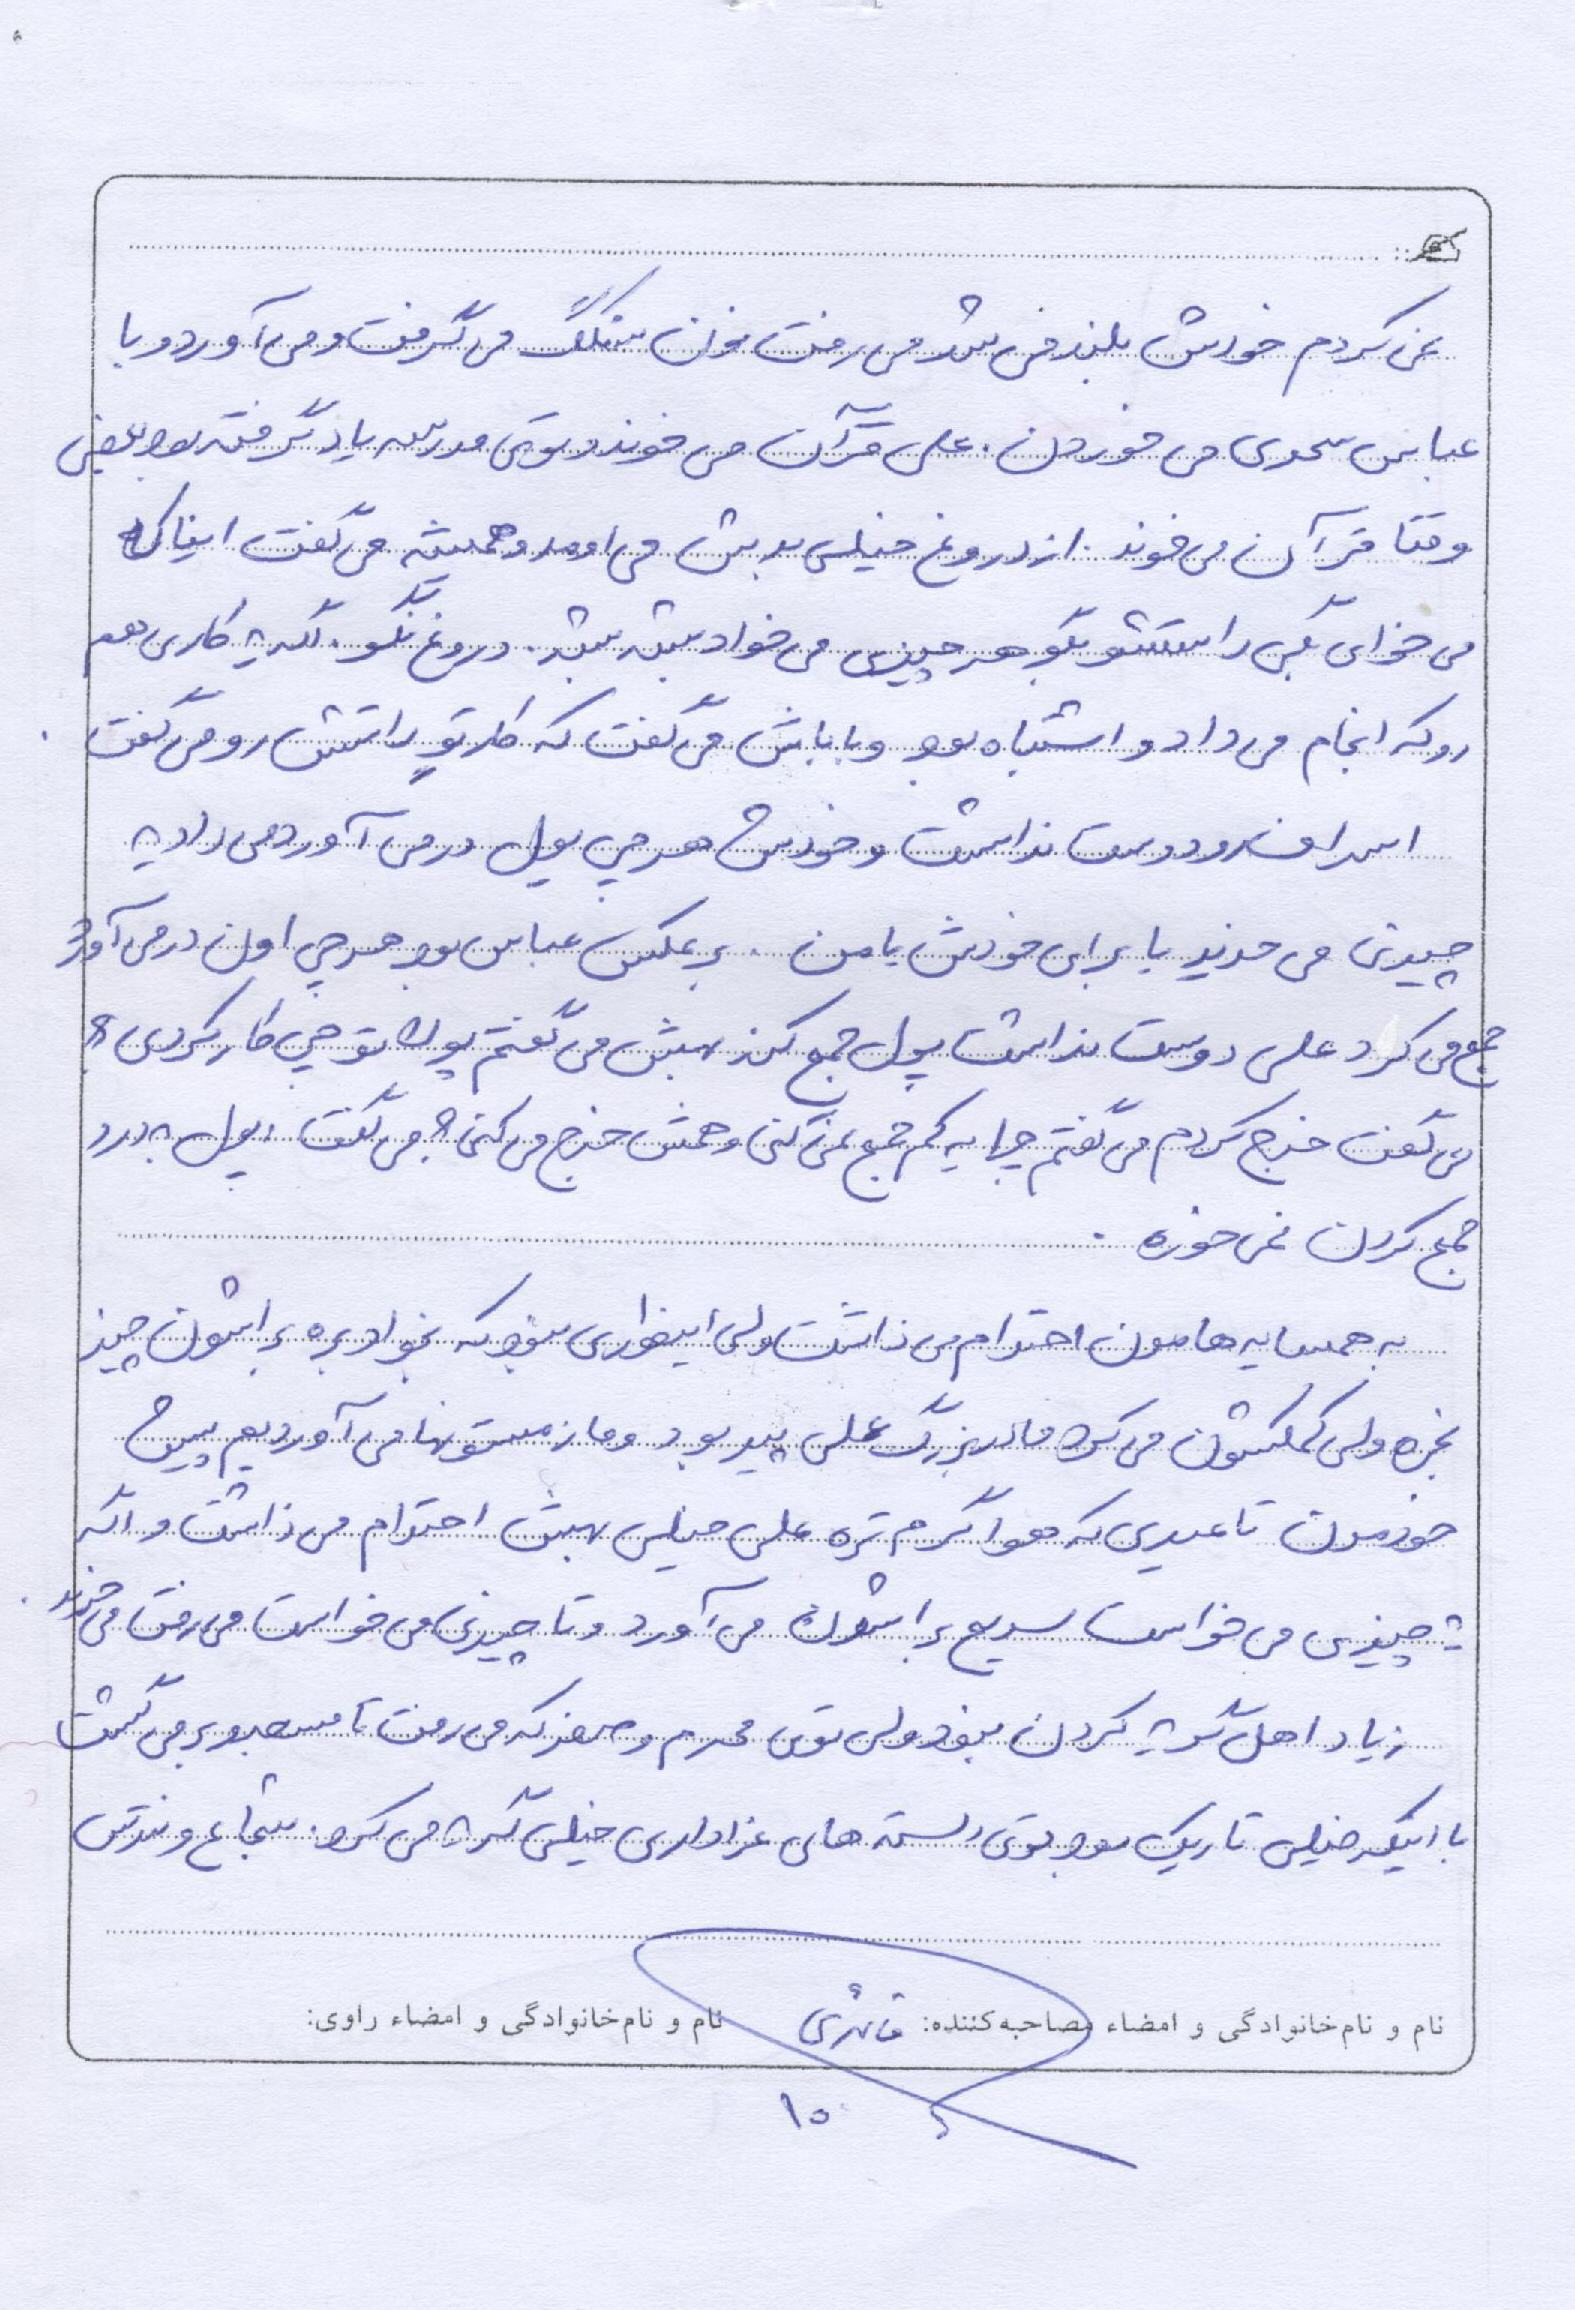 نمی کردم خودش بلند می شد می رفت نون سنگگ می گرفت و می آورد و با
عباس سحری می خوردن. علی قرآن می خوند و توی مدرسه یاد گرفته بود بعضی
وقتا قرآن می خوند. از دروغ خیلی بدش می اومد و همیشه می گفت اینا که
می خوای بگی راستشو بگو هر چیزی می خواد بشه بشه. دروغ نگو. اگه یه کاری هم
رو که انجام می داد و اشتباه بود و باباش می گفت که کار تو راستش رو می گفت
اسراف رو دوست نداشت و خودش هر چی پول در می آورد می داد یه
چیزی می خرید یا برای خودش یا من. برعکس عباس بود هر چی اون در می آورد
جمع می کرد علی دوست نداشت پول جمع کنه بهش می گفتم پولا تو چی کار کردی؟
می گفت خرج کردم می گفتم چرا یه کم جمع نمی کنی و همش خرج می کنی؟ می گفت پول به درد
جمع کردن نمی خوره.
به همسایه هامون احترام می ذاشت ولی اینطوری نبود که بخواد بره براشون چیز
بخره ولی کمکشون می کرد مادربزرگ علی پیر بود و ما زمستونها می آوردیم پیش
خودمون تا عیدی که هوا گرم تره علی خیلی بهش احترام می ذاشت و اگه
یه چیزی می خواست سریع براشون می آورد و تا چیزی می خواست می رفت می خرید.
زیاد اهل گریه کردن نبود ولی توی محرم و صفر که می رفت تا مسجد و بر می گشت
با اینکه خیلی تاریک بود توی دسته های عزاداری خیلی گریه می کرد. شجاع و نترس
نام و نام خانوادگی و امضاء مصاحبه کننده: نام و نام خانوادگی و امضاء راوی:
۱۵